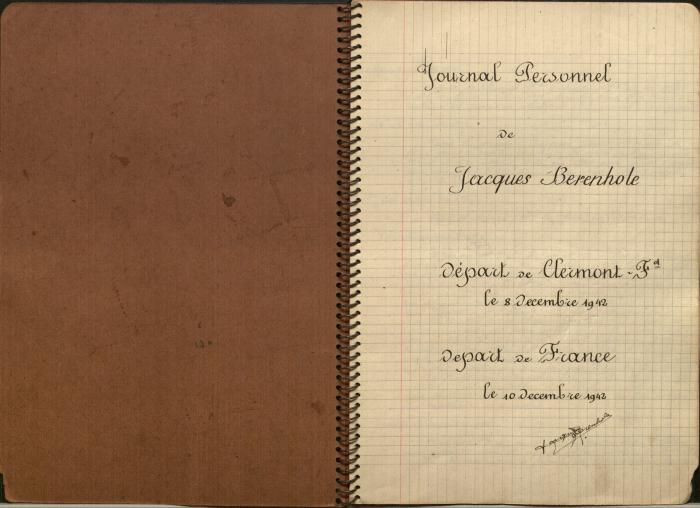 Journal Personnel
de
Jacques Berenhole
Départ de Clermont-Fd
le 8 Decembre 1942
Depart de France
le 10 Decembre 1942